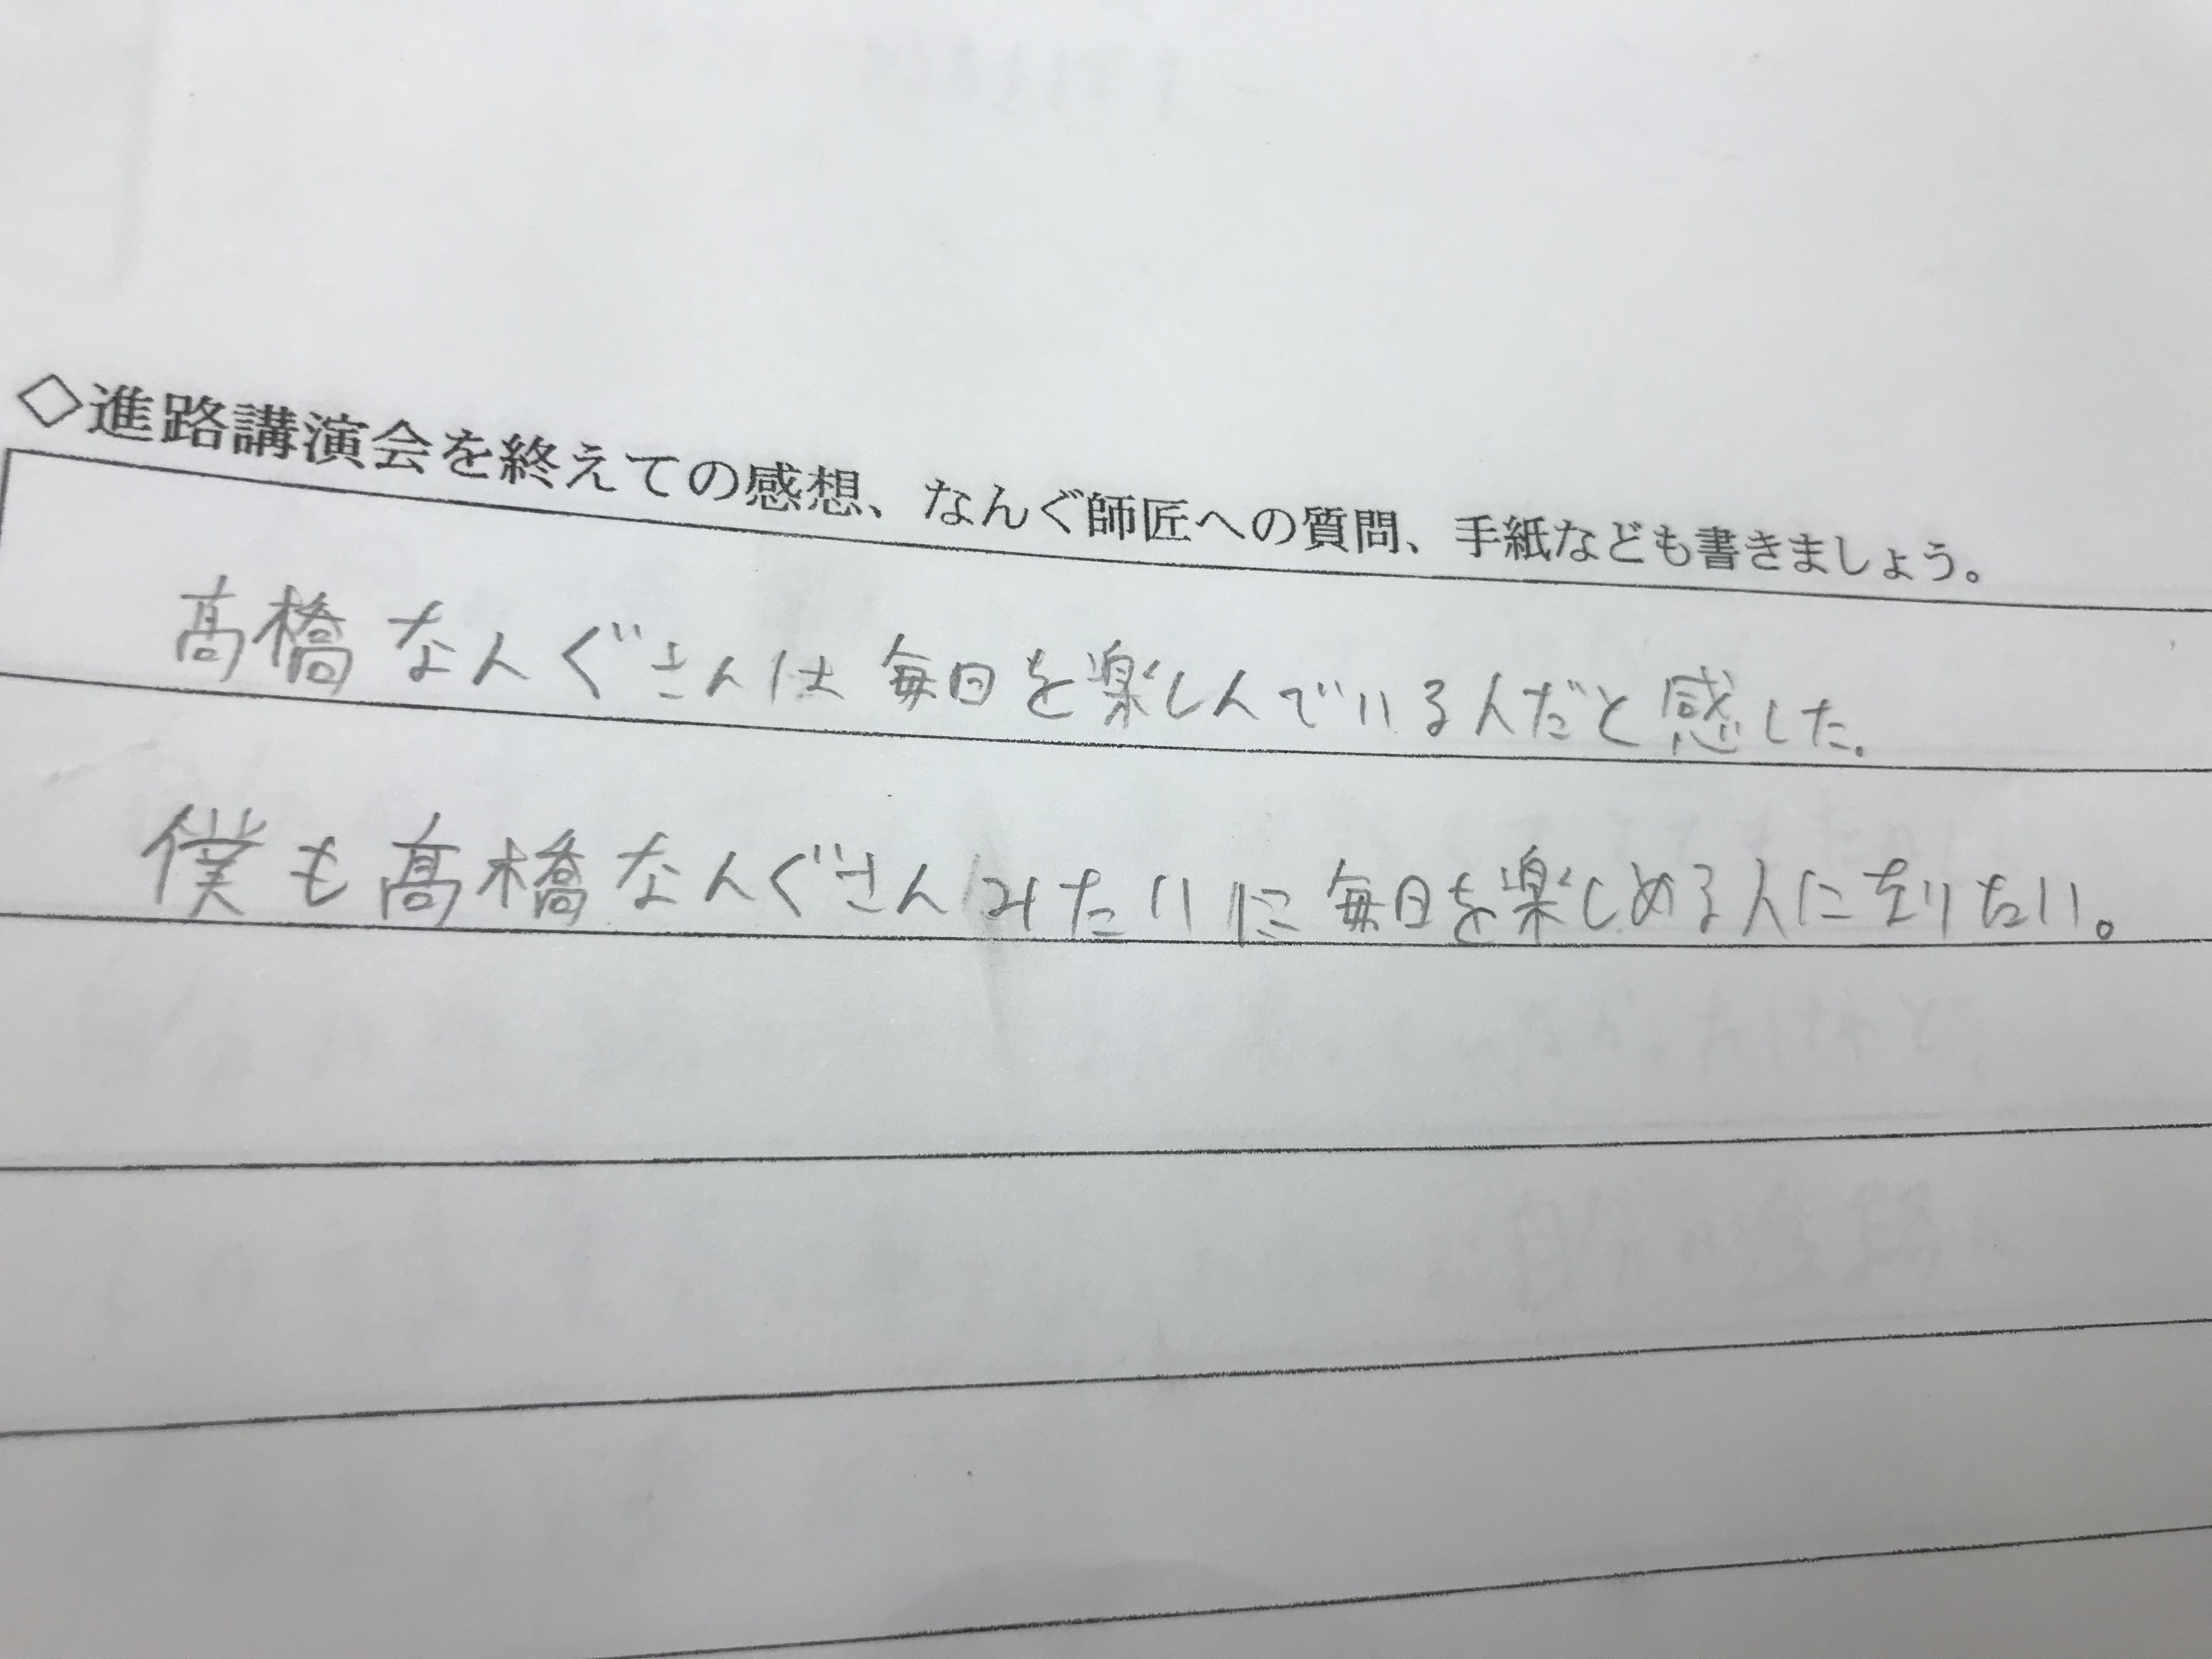 ◇進路講演会を終えての感想、なんぐ師匠への質問、手紙なども書きましょう。
髙橋なんぐさんは毎日を楽しんでいる人だと感した。
僕も髙橋なんぐさんみたいに毎日を楽しめる人になりたい。